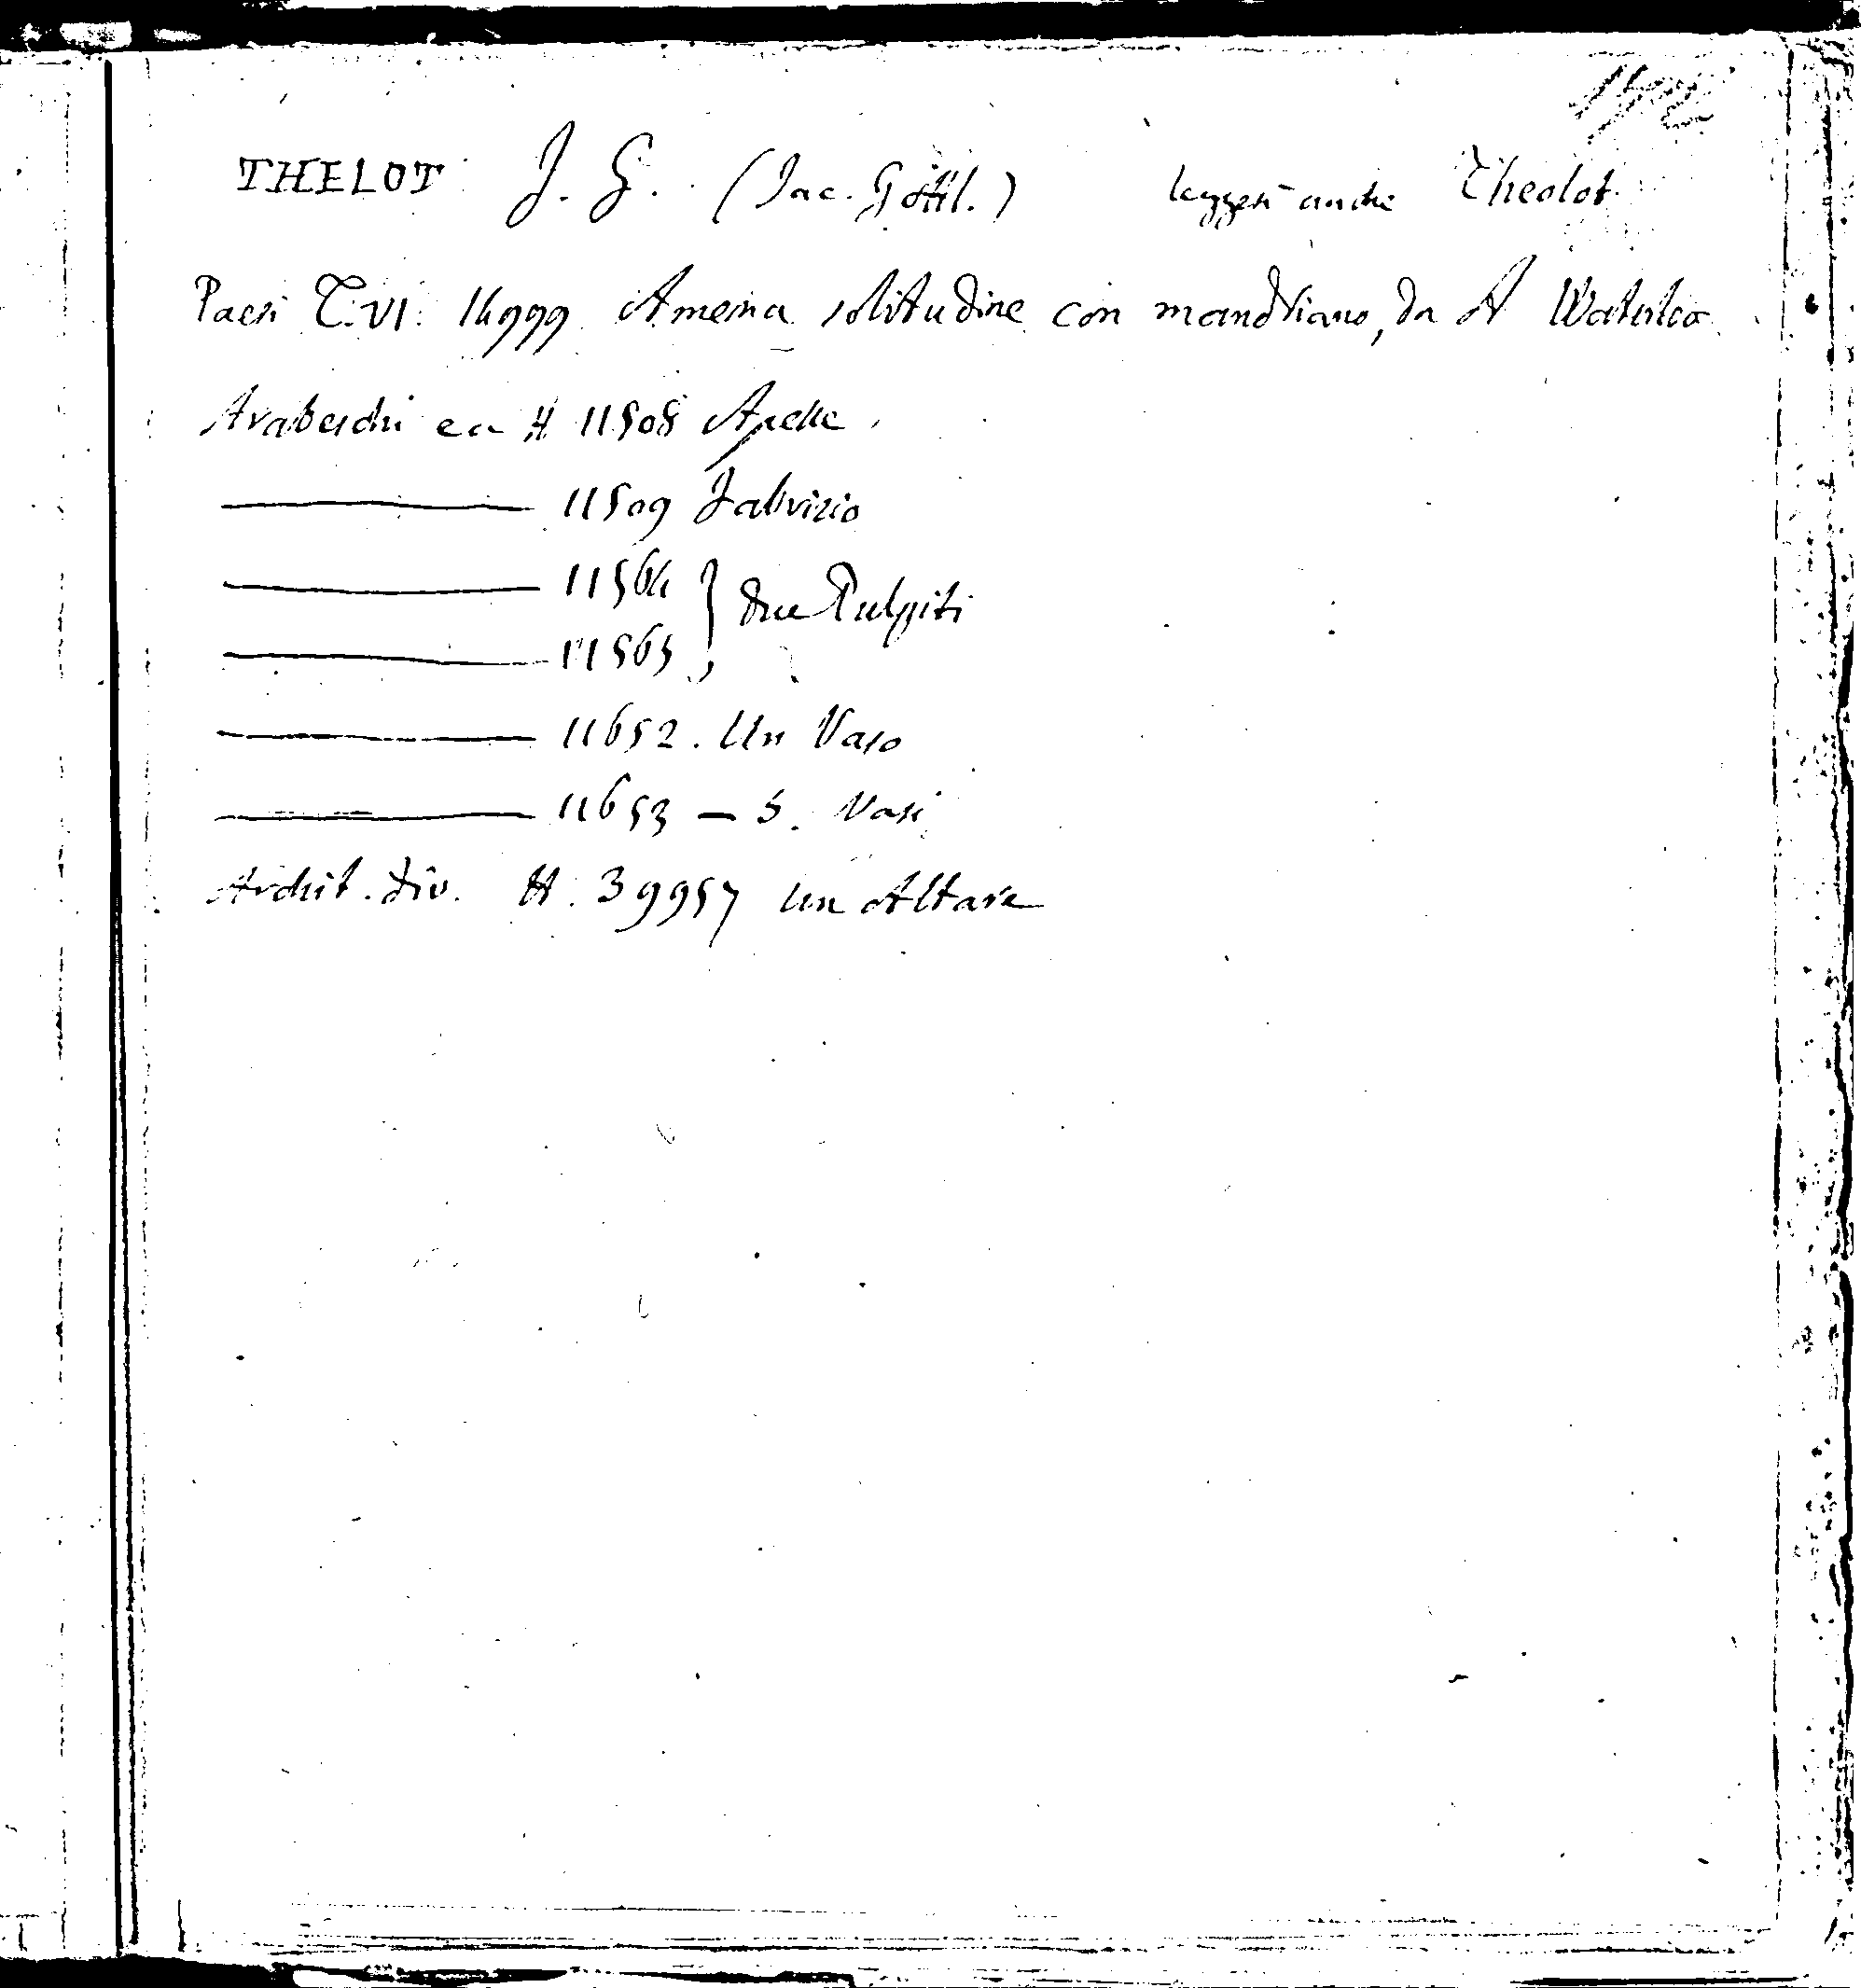 THELOT J. G. (Jac. Göttl.) leggesi anche Theolot.
Paesi T. VI. 14999 Amena solitudine con mandriano, da A Waterloo
Arabeschi ec H 11508 Apelle
11509 Fabrizio
11564
due Pulpiti
11565
11652. Un Vaso
11653 — 5. Vasi
Archit. div. H. 39957 un Altare